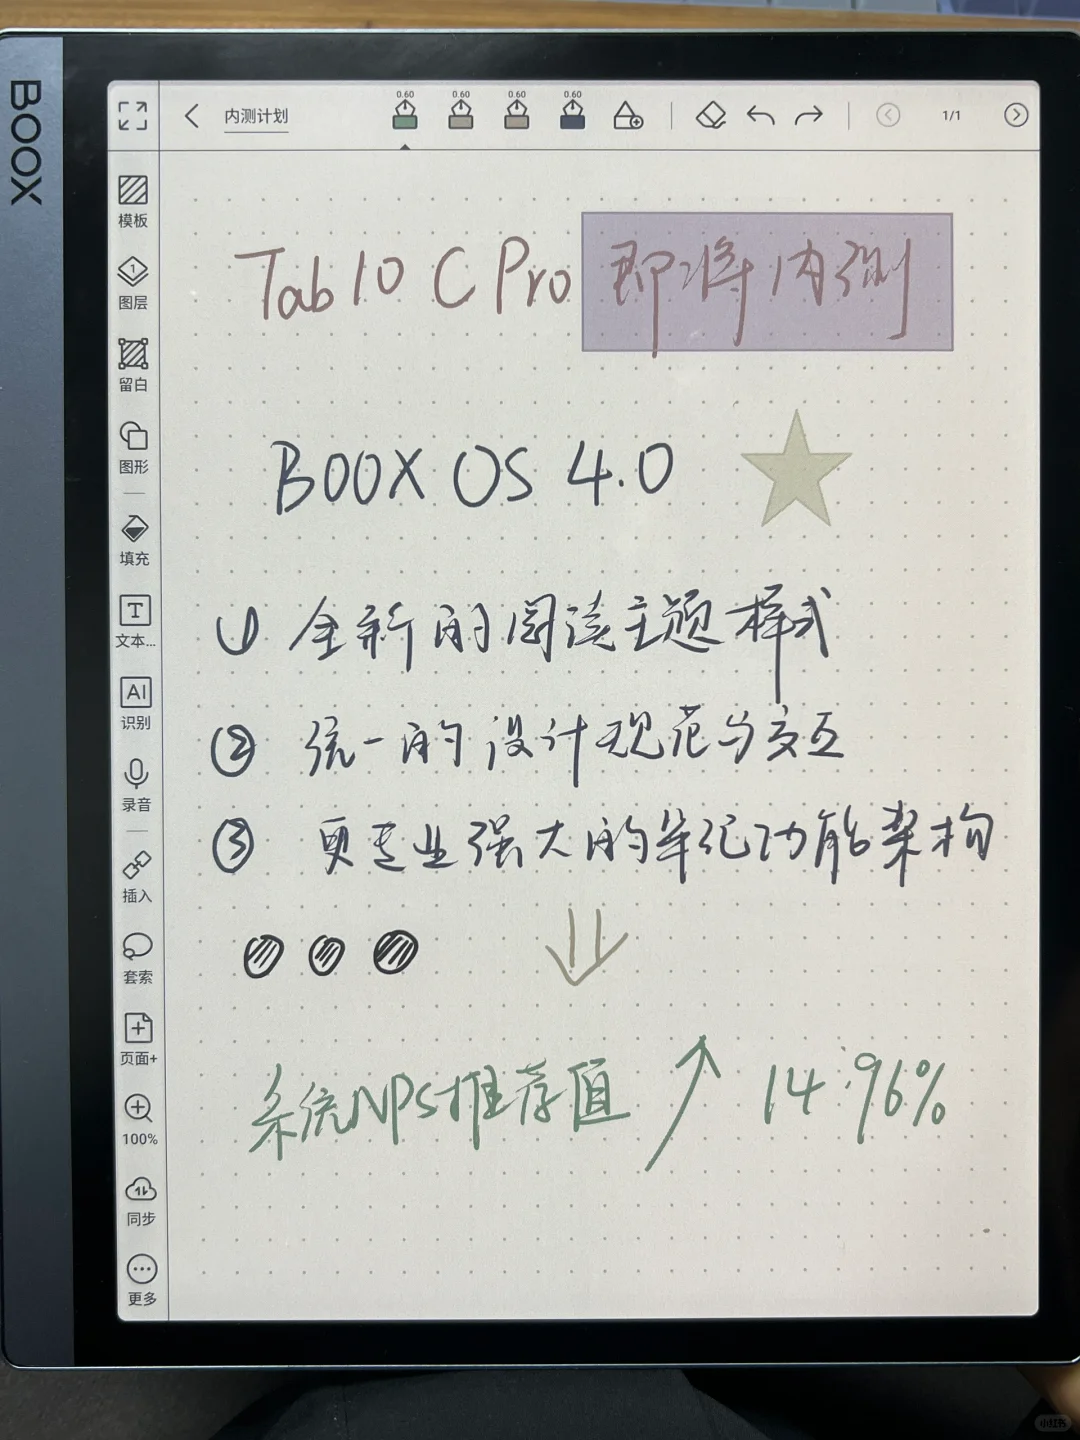 BOOX
内测计划
0.60 0.60 0.60 0.60
1/1
模板
图层
留白
图形
填充
文本...
AI
识别
录音
插入
套索
页面+
100%
同步
更多
Tab 10 C Pro 即将内测
BOOX OS 4.0
① 全新的阅读主题样式
② 统一的设计规范与交互
③ 更专业强大的笔记功能架构
系统NPS推荐值 ↗ 14.96%
小红书